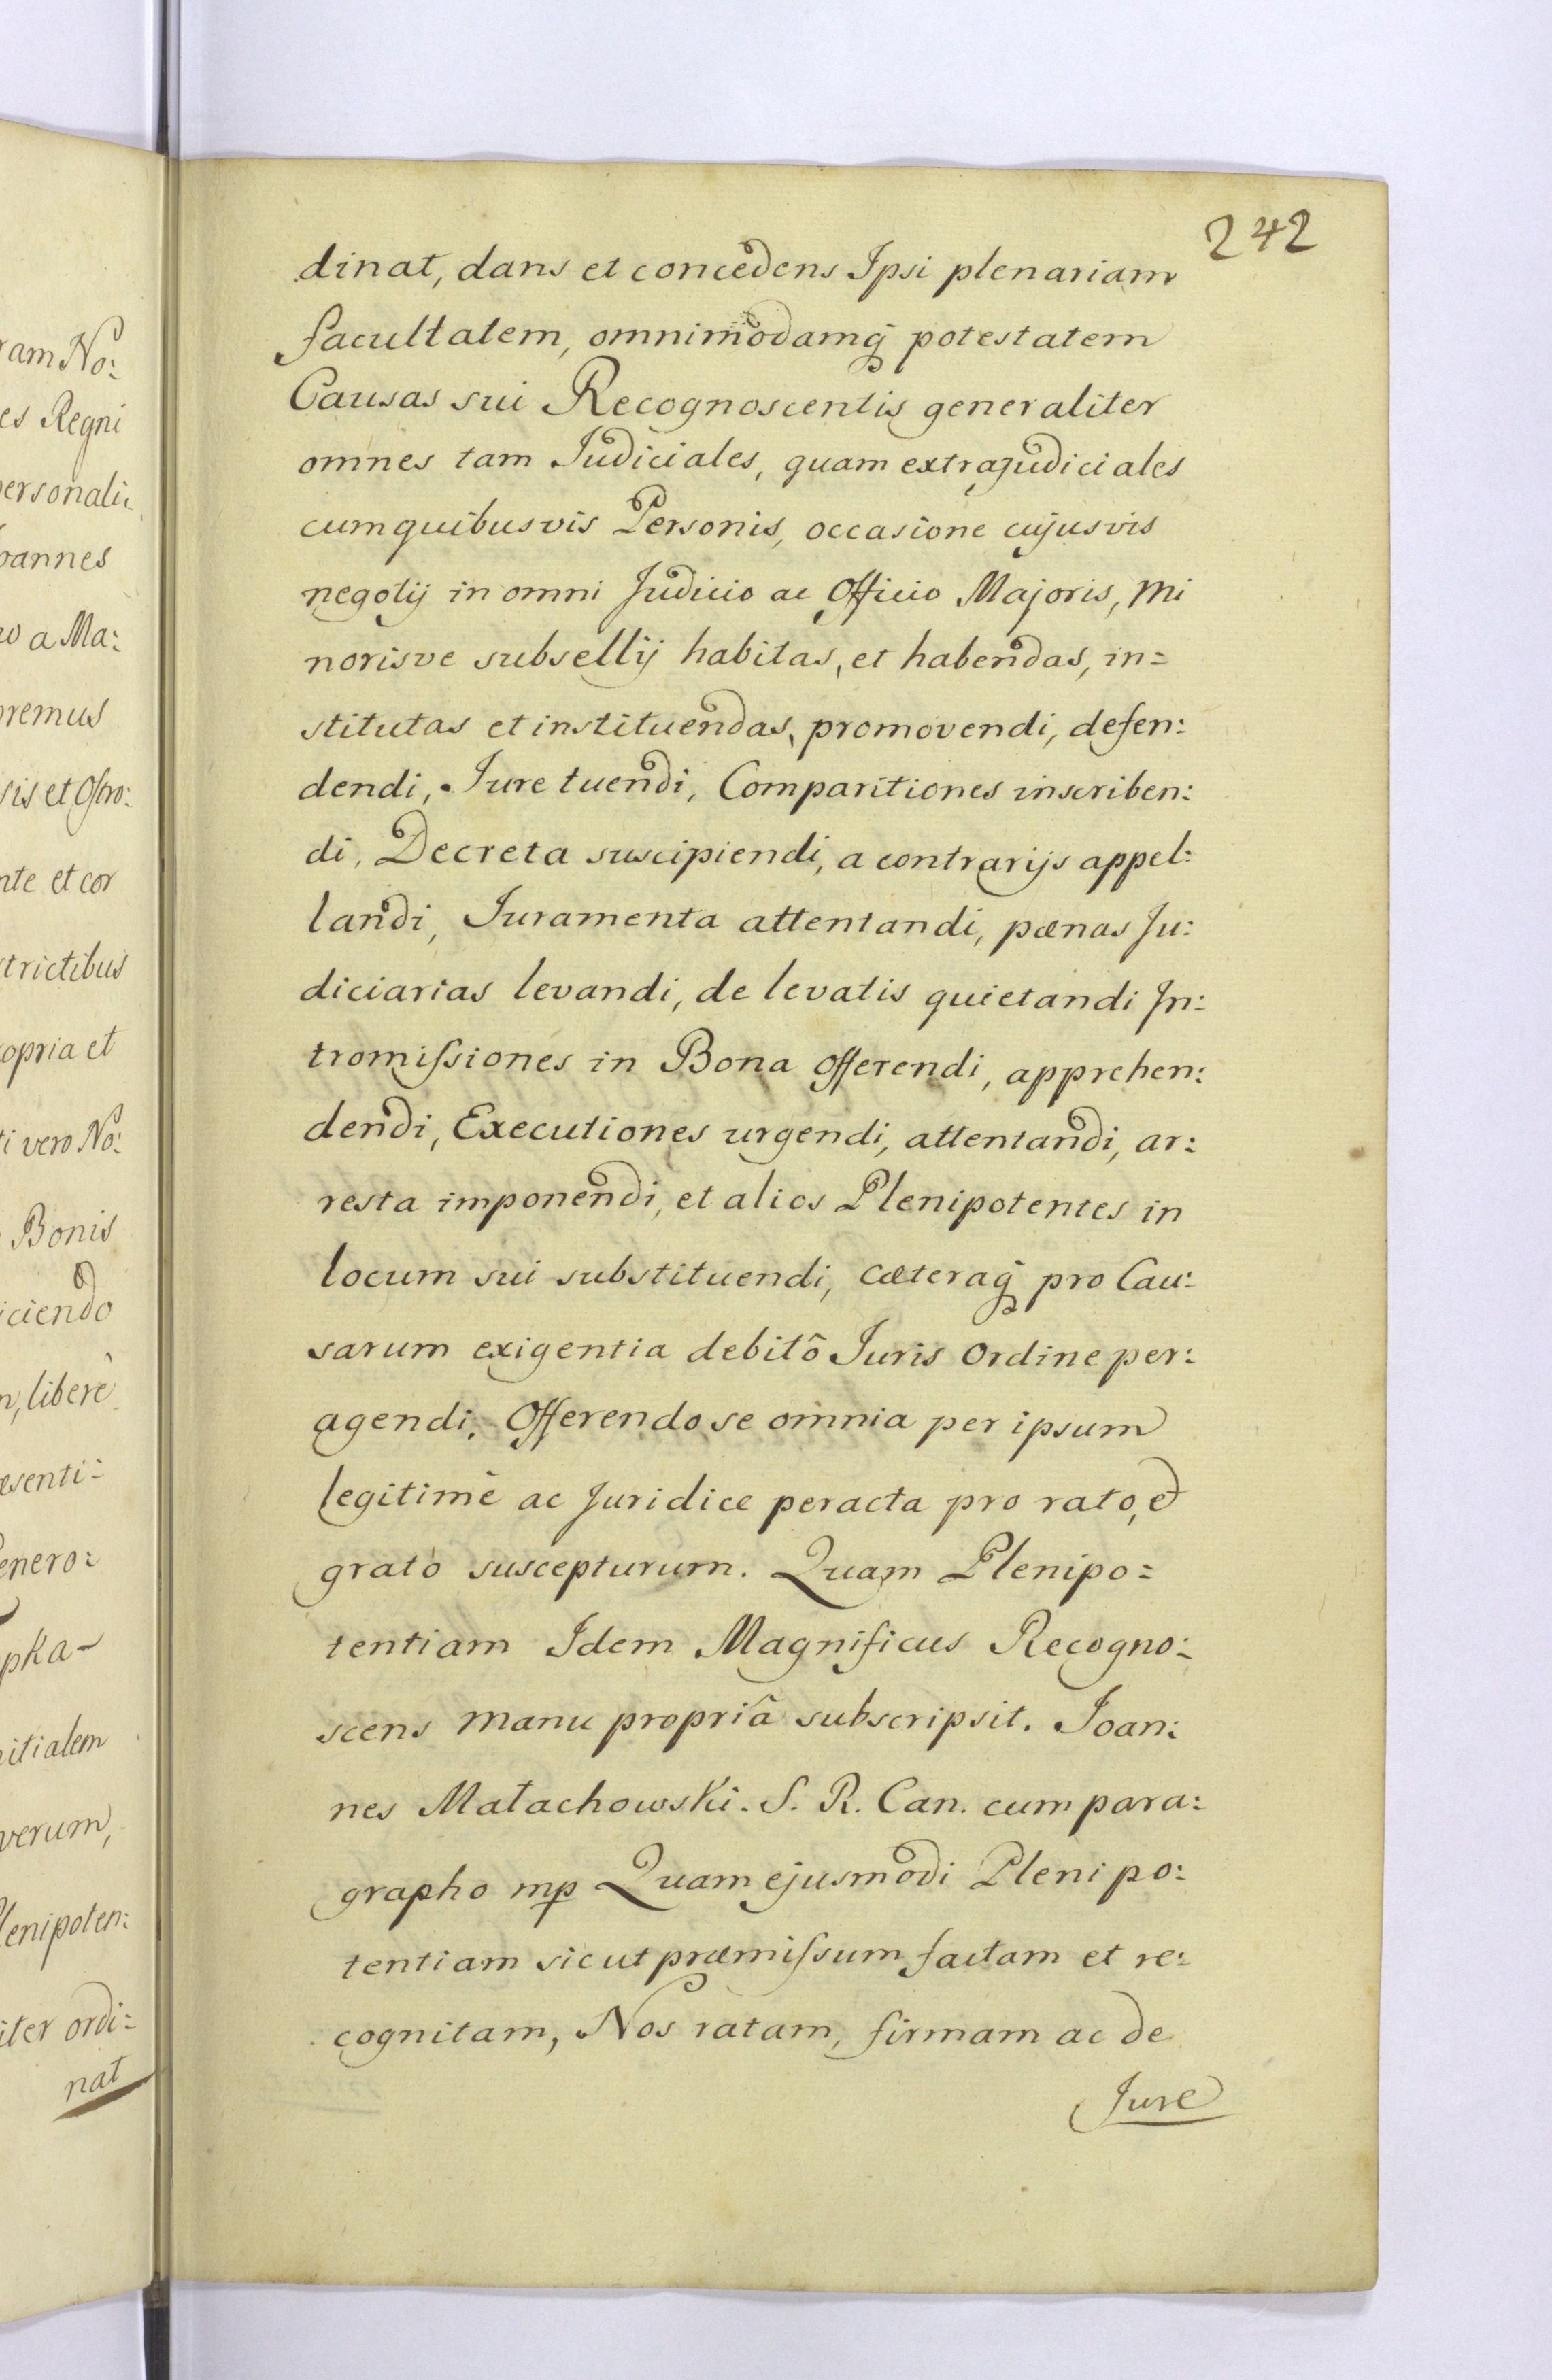 ram No:
es Regni
personali:
oannes
a Ma:
premus
sis et Ostro:
nte et cor
trictibus
ropria et
ti vero No:
Bonis
iciendo
libere
esenti:
enero:
pka-
itialem
verum,
lenipoten:
iter ordi:
nat
242
dinat, dans et concedens Ipsi plenariam
facultatem, omnimodamq̃ potestatem
Causas sui Recognoscentis generaliter
omnes tam Judiciales, quam extrajudiciales
cum quibusvis Personis, occasione cujusvis
negotij in omni Judicio ac Officio Majoris, Mi
norisve subsellij habitas, et habendas, in=
stitutas et instituendas, promovendi, defen:
dendi, Jure tuendi, Comparitiones inscriben:
di, Decreta suscipiendi, a contrarijs appel:
landi, Juramenta attentandi, pænas Ju:
diciarias levandi, de levatis quietandi In:
tromiſsiones in Bona offerendi, apprehen:
dendi, Executiones urgendi, attentandi, ar:
resta imponendi, et alios Plenipotentes in
locum sui substituendi, cæteraq̃ pro Cau:
sarum exigentia debitô Juris Ordine per:
agendi, Offerendo se omnia per ipsum
legitimè ac Juridice peracta pro rato, et
grato suscepturum. Quam Plenipo=
tentiam Idem Magnificus Recogno:
scens manu propriâ subscripsit. Joan:
nes Małachowski. S. R. Can. cum para:
grapho mp Quam ejusmodi Plenipo:
tentiam sicut præmiſsum factam et re:
cognitam, Nos ratam, firmam ac de
Jure